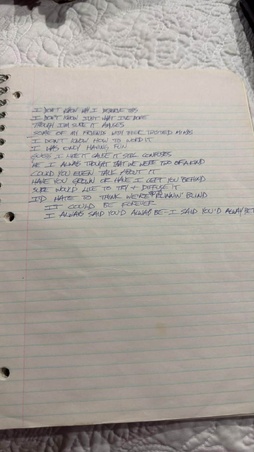 I DON'T KNOW WHY I DESERVE THIS
I DON'T KNOW JUST WHAT I'VE DONE
THOUGH I'M SURE IT AMUSES
SOME OF MY FRIENDS WITH THEIR TWISTED MINDS
I DON'T KNOW HOW TO WORD IT
I WAS ONLY HAVING FUN
GUESS I LIKE IT CAUSE IT STILL CONFUSES
ME I ALWAYS THOUGHT THAT WE WERE TWO OF A KIND
COULD YOU EVEN TALK ABOUT IT
HAVE YOU GROWN OR HAVE I LEFT YOU BEHIND
SURE WOULD LIKE TO TRY + DIFFUSE IT
I'D HATE TO THINK WE'RE RUNNIN' BLIND
IT COULD BE FOREVER
I ALWAYS SAID YOU'D ALWAY BE - I SAID YOU'D ALWAY BE